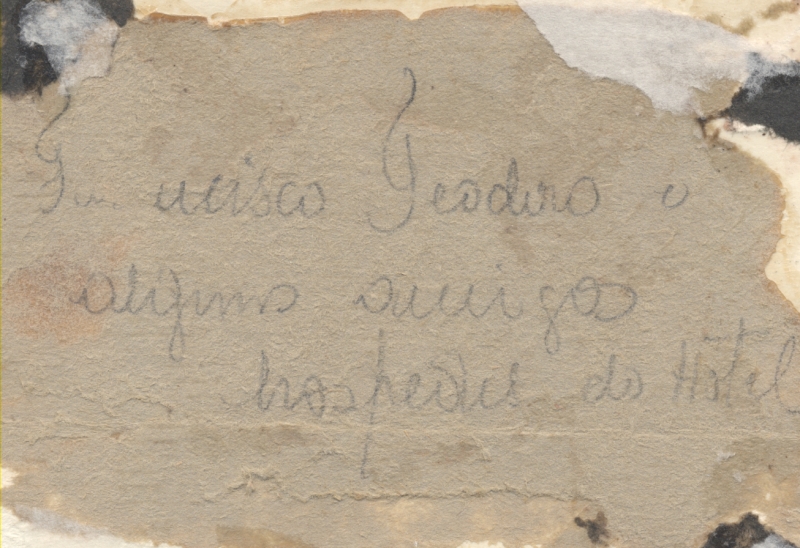 Francisco Teodoro e
alguns amigos
hospedes do Hotel